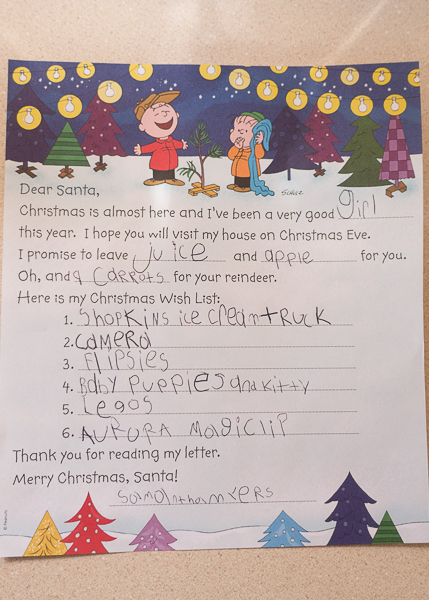 Schulz
Dear Santa,
Christmas is almost here and I've been a very good girl
this year. I hope you will visit my house on Christmas Eve.
I promise to leave juice and apple for you.
Oh, and 9 carrots for your reindeer.
Here is my Christmas Wish List:
1. Shopkins ice creamtruck
2. camera
3. Flipsies
4. Baby puppies and kitty
5. Legos
6. AURORA Magiclip
Thank you for reading my letter.
Merry Christmas, Santa!